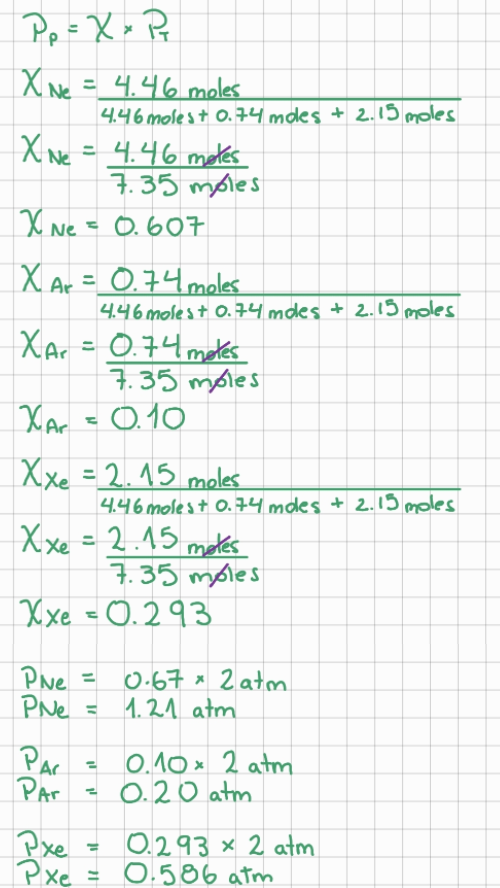 Pp = X × PT
XNe = 4.46 moles
4.46 moles + 0.74 moles + 2.15 moles
XNe = 4.46 moles
7.35 moles
XNe = 0.607
XAr = 0.74 moles
4.46 moles + 0.74 moles + 2.15 moles
XAr = 0.74 moles
7.35 moles
XAr = 0.10
XXe = 2.15 moles
4.46 moles + 0.74 moles + 2.15 moles
XXe = 2.15 moles
7.35 moles
XXe = 0.293
PNe = 0.67 × 2 atm
PNe = 1.21 atm
PAr = 0.10 × 2 atm
PAr = 0.20 atm
PXe = 0.293 × 2 atm
PXe = 0.586 atm